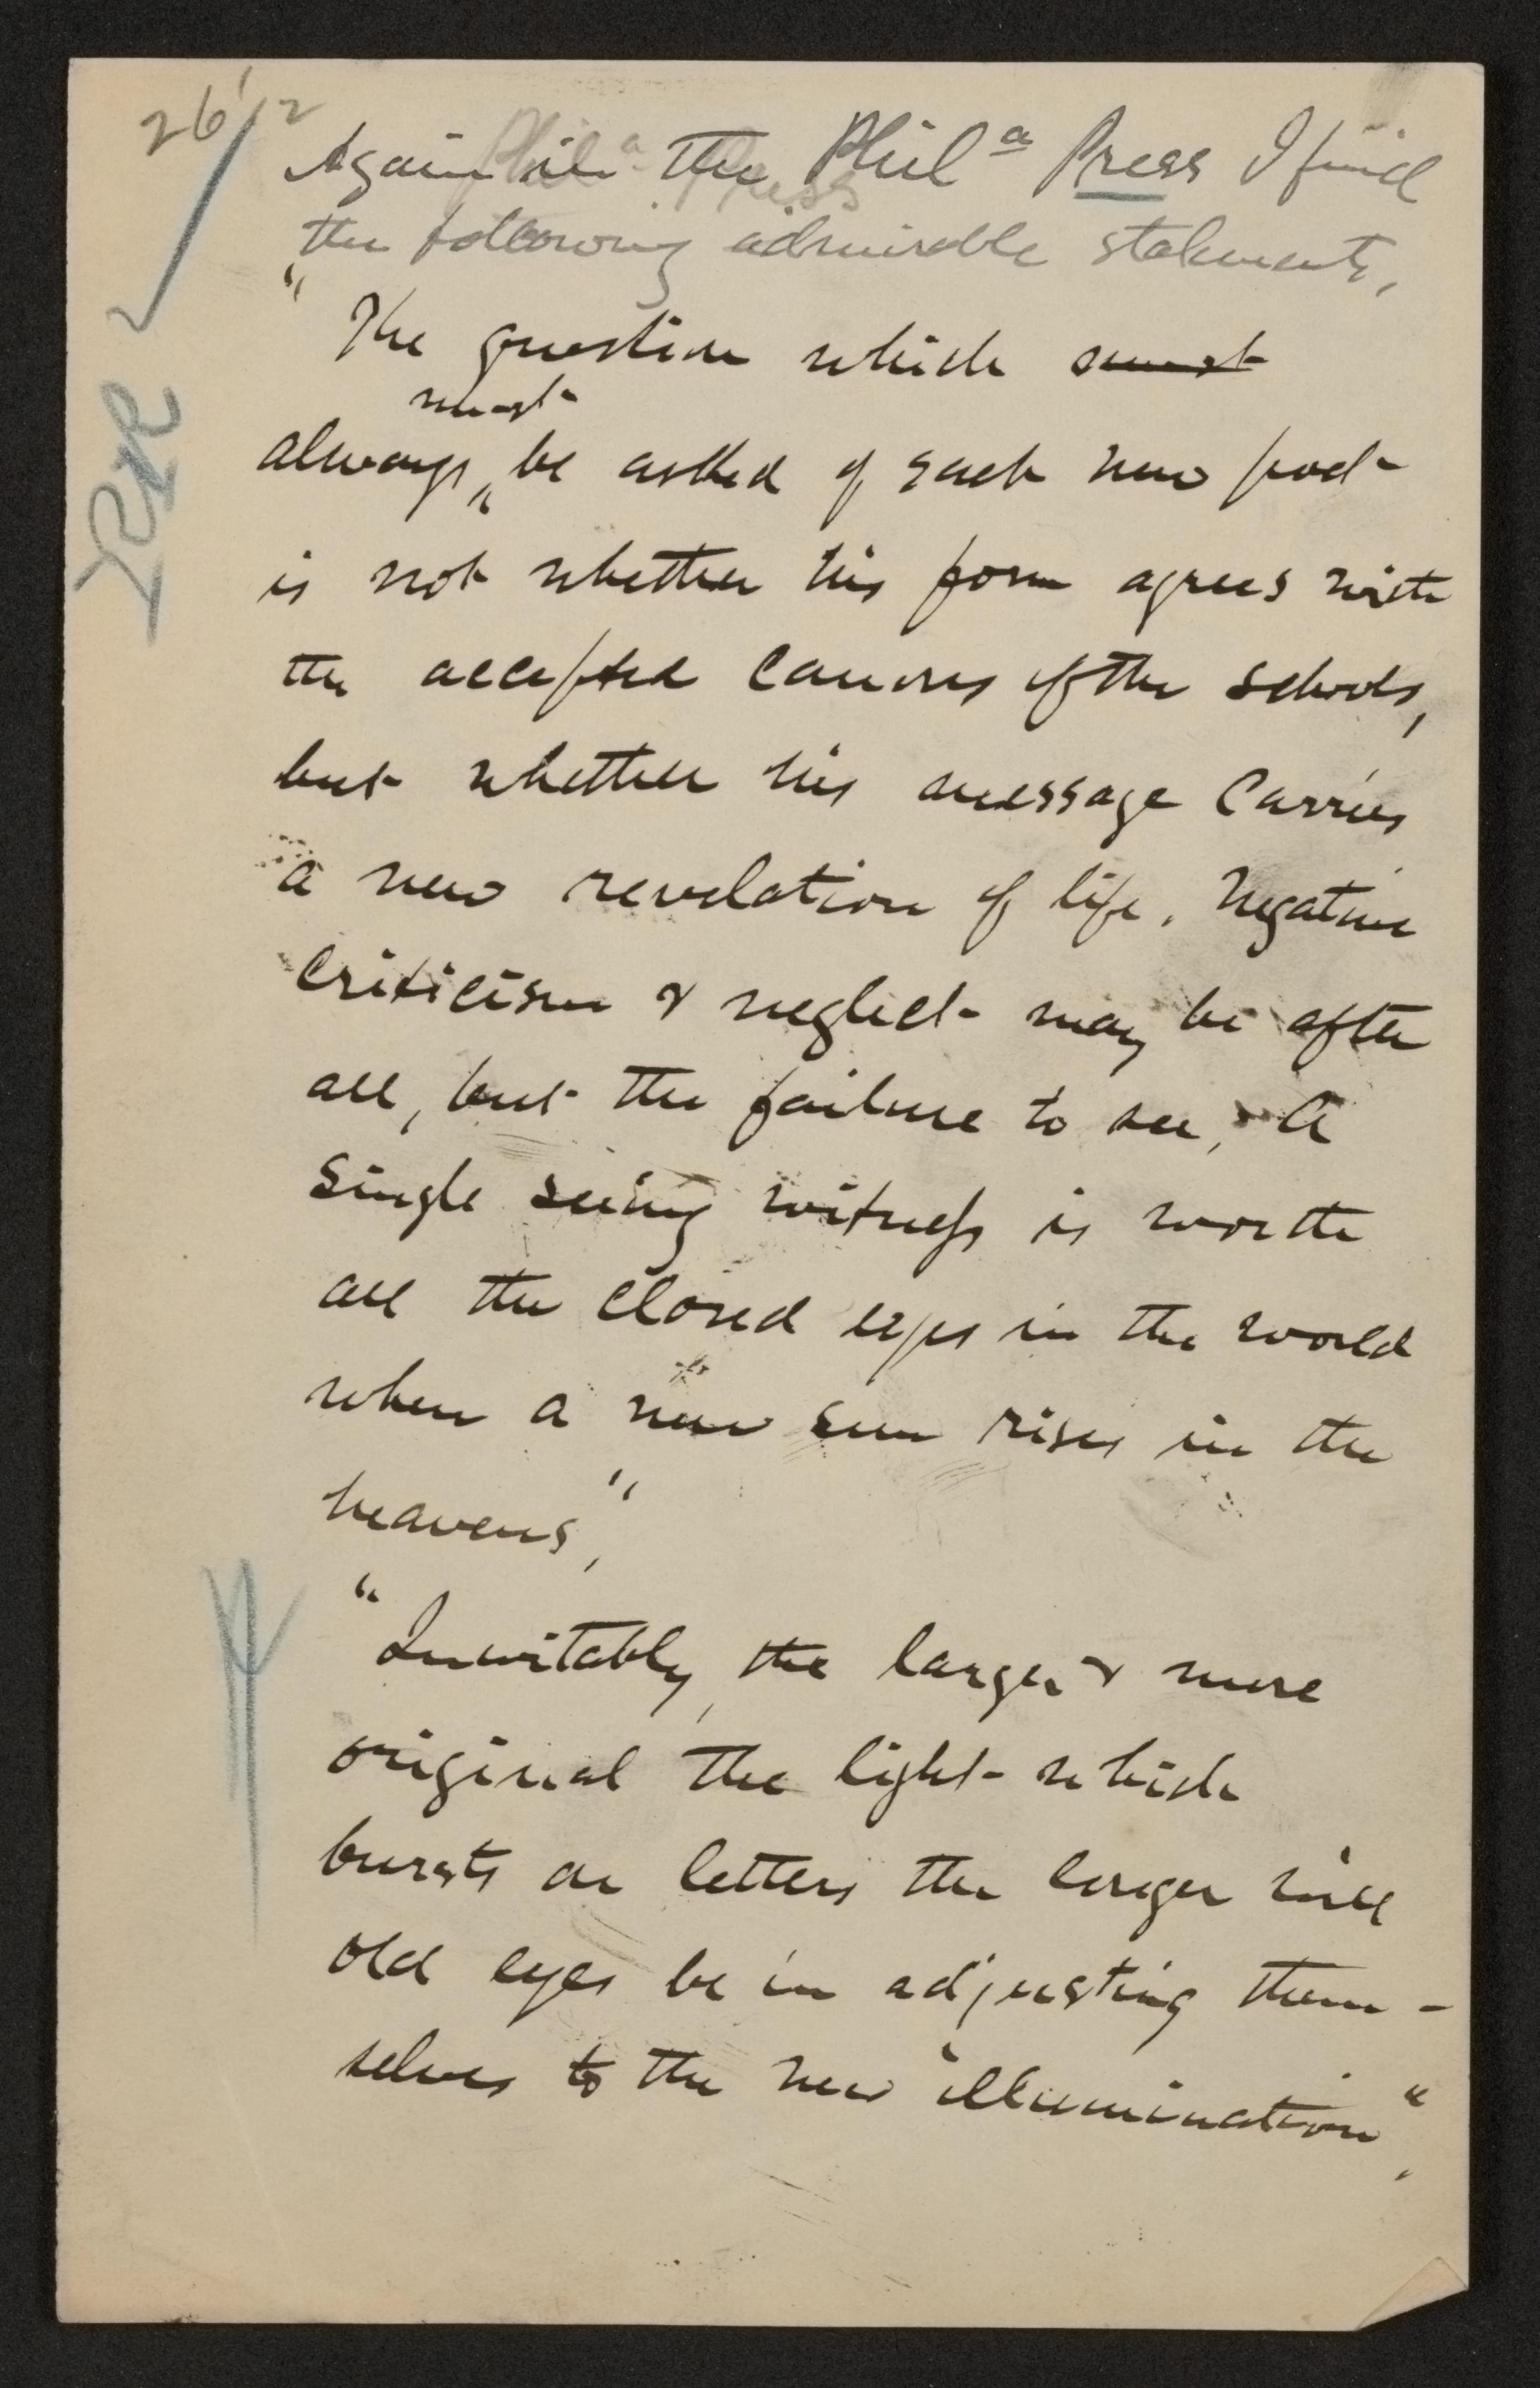 26 1/2
Again in the Phil a Press I find
the following admirable statements,
" The question which must
must
always be asked of each new poet
is not whether his form agrees with
the accepted canons of the schools,
but whether his message carries
a new revelation of life. Negative
criticism & neglect may be after
all, but the failure to see, A
single seeing witness is worth
all the closed eyes in the world
when a new sun rises in the
heavens,"
"Inevitably, the larger & more
original the light which
bursts on letters the longer will
old eyes be in adjusting them-
selves to the new illumination",